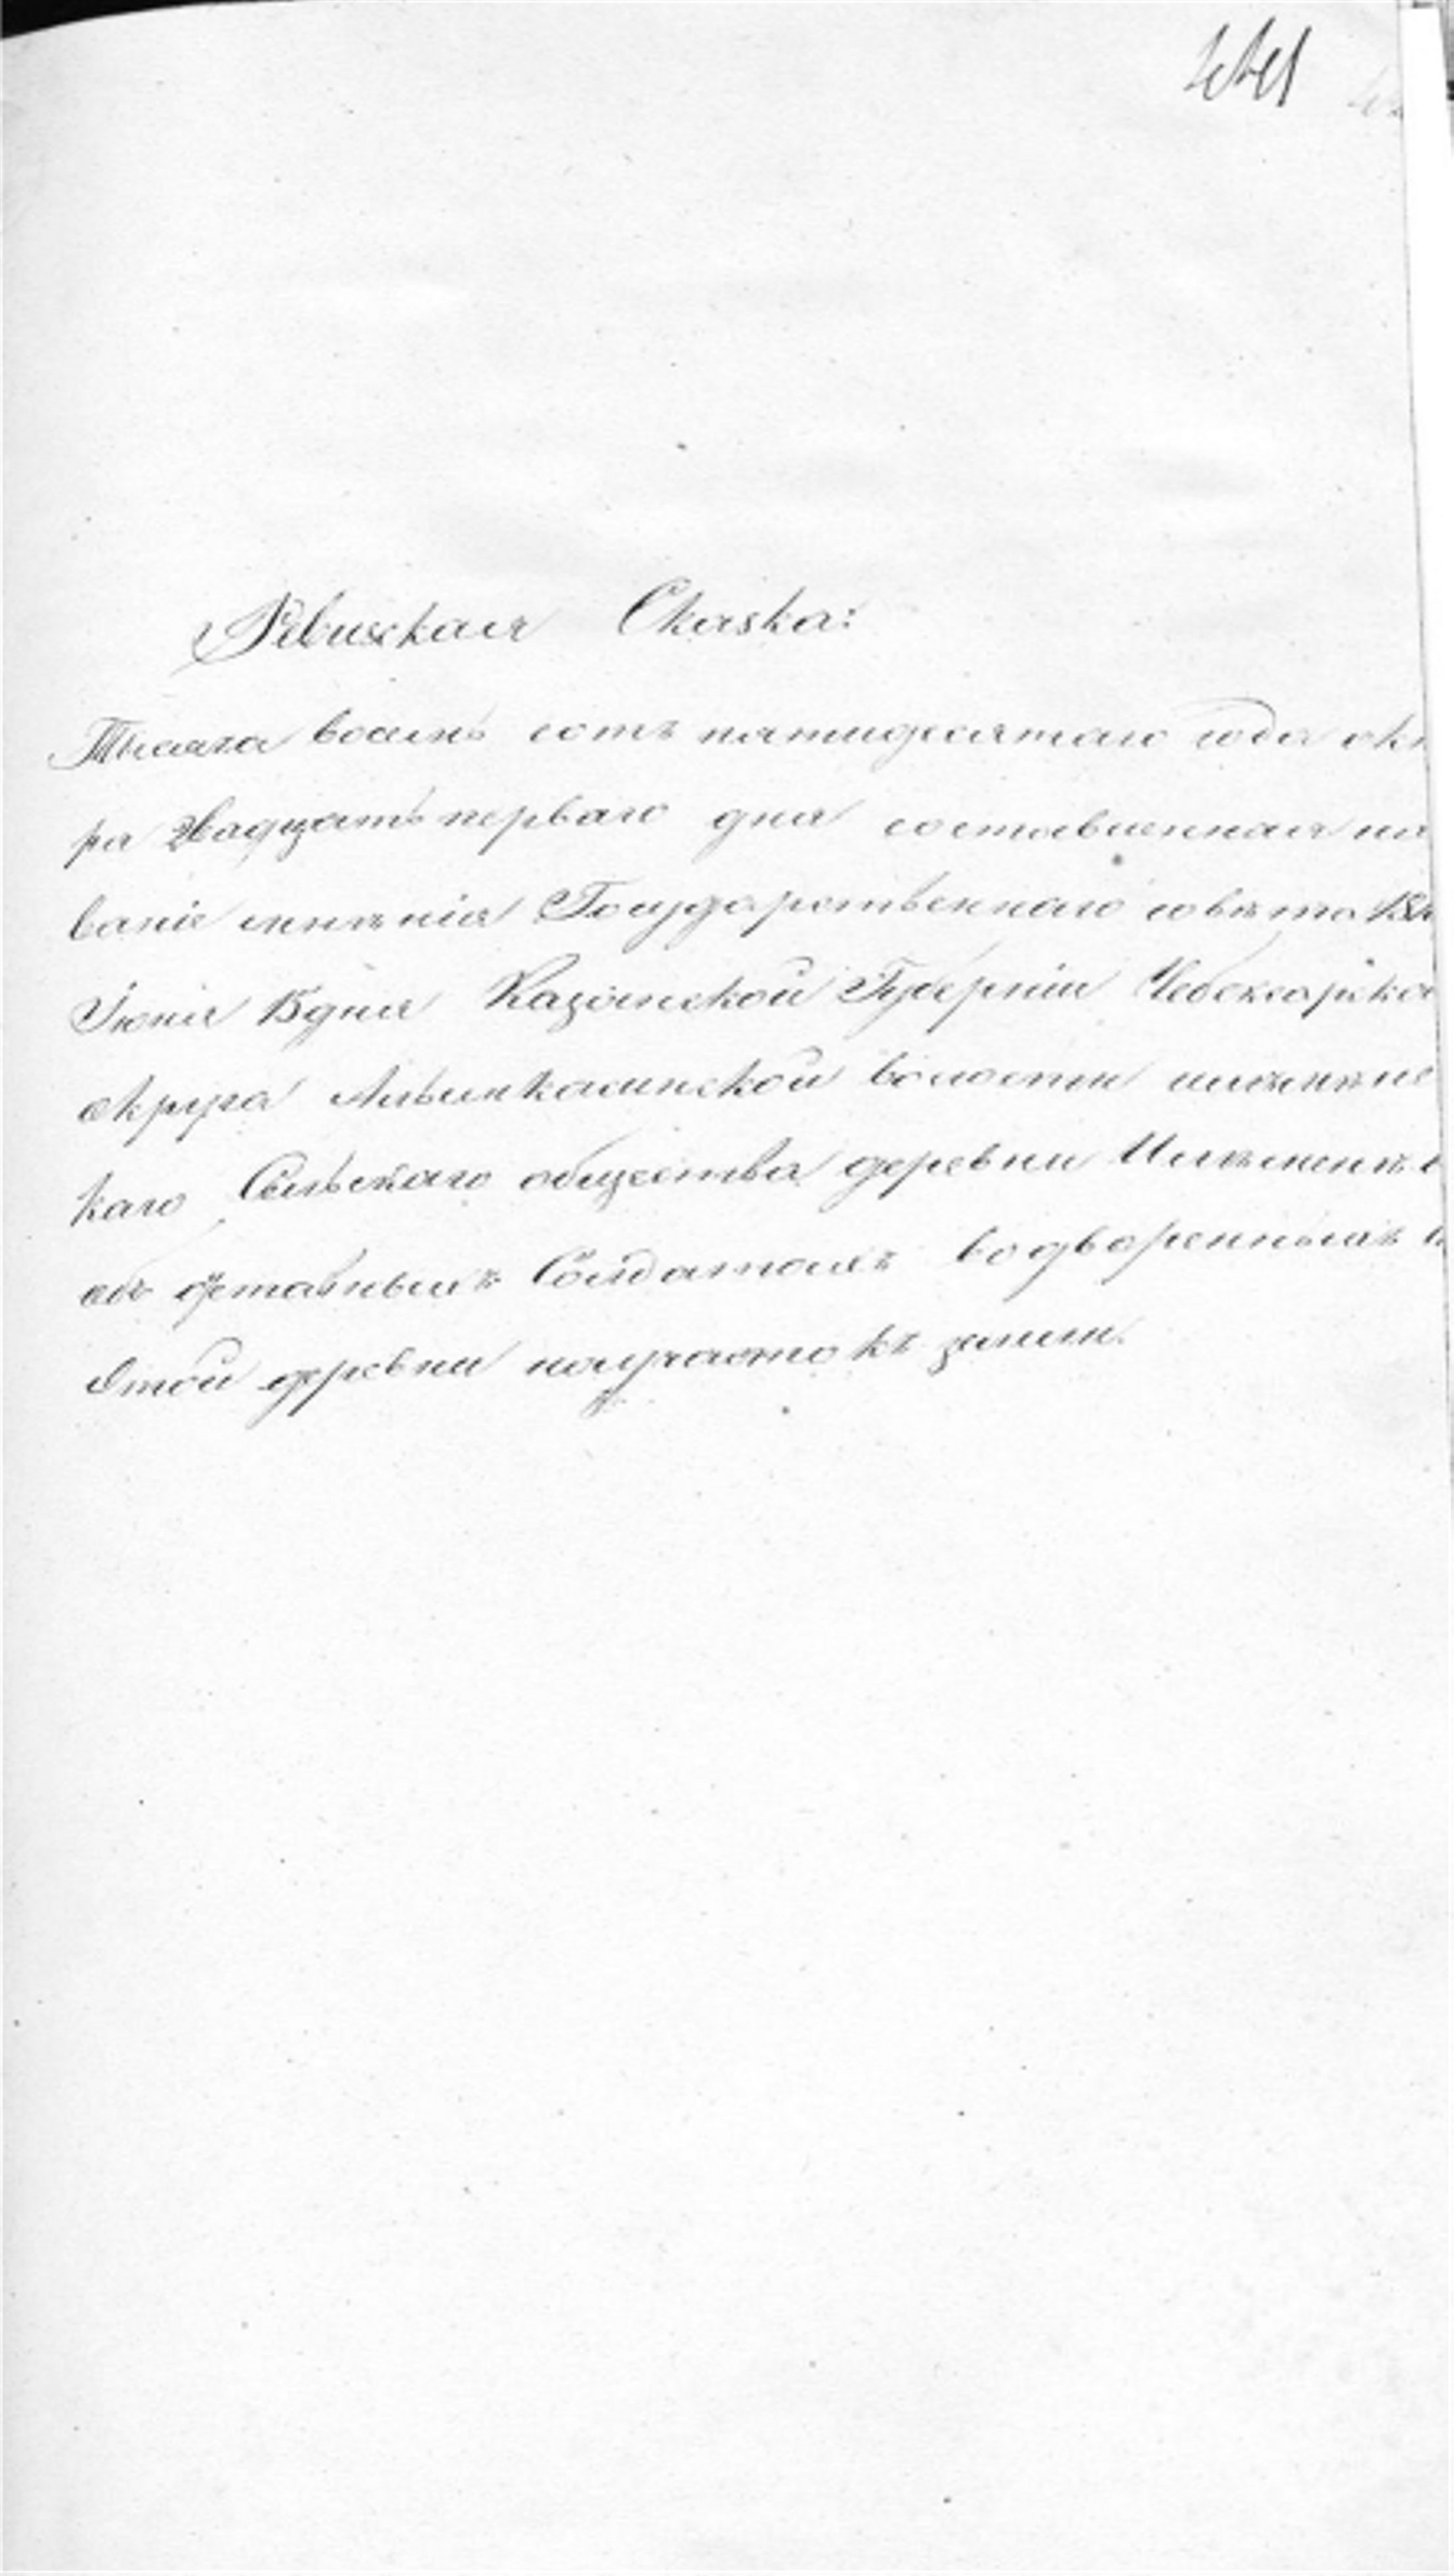 441
Ревизская Сказка:
Тысяча восемь сотъ пятидесятаго года окт
ря двадцать перваго дня составленная на
ваніе мнѣнія Государственнаго совѣта 184
Іюня 15 дня Казанской Губерніи Чебоксарска
округа Алымкасинской волости
каго Сельскаго общества деревни
объ отставныхъ Солдатахъ водворенныхъ
этой деревни научасткѣ земли.